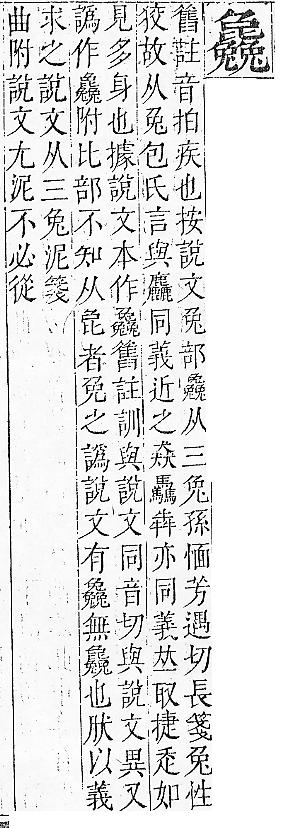 舊註音拍疾也按說文兔部𠓗从三兔孫愐芳遇切長箋兔性
狡故从兔包氏言與麤同義近之猋驫犇亦同義𠀤取捷疌如
見多身也據說文本作𠓗舊註訓與說文同音切與說文異又
譌作附比部不知从㲋者兔之譌說文有𠓗無也肰以義
求之說文从三兔泥箋
曲附說文尤泥不必從